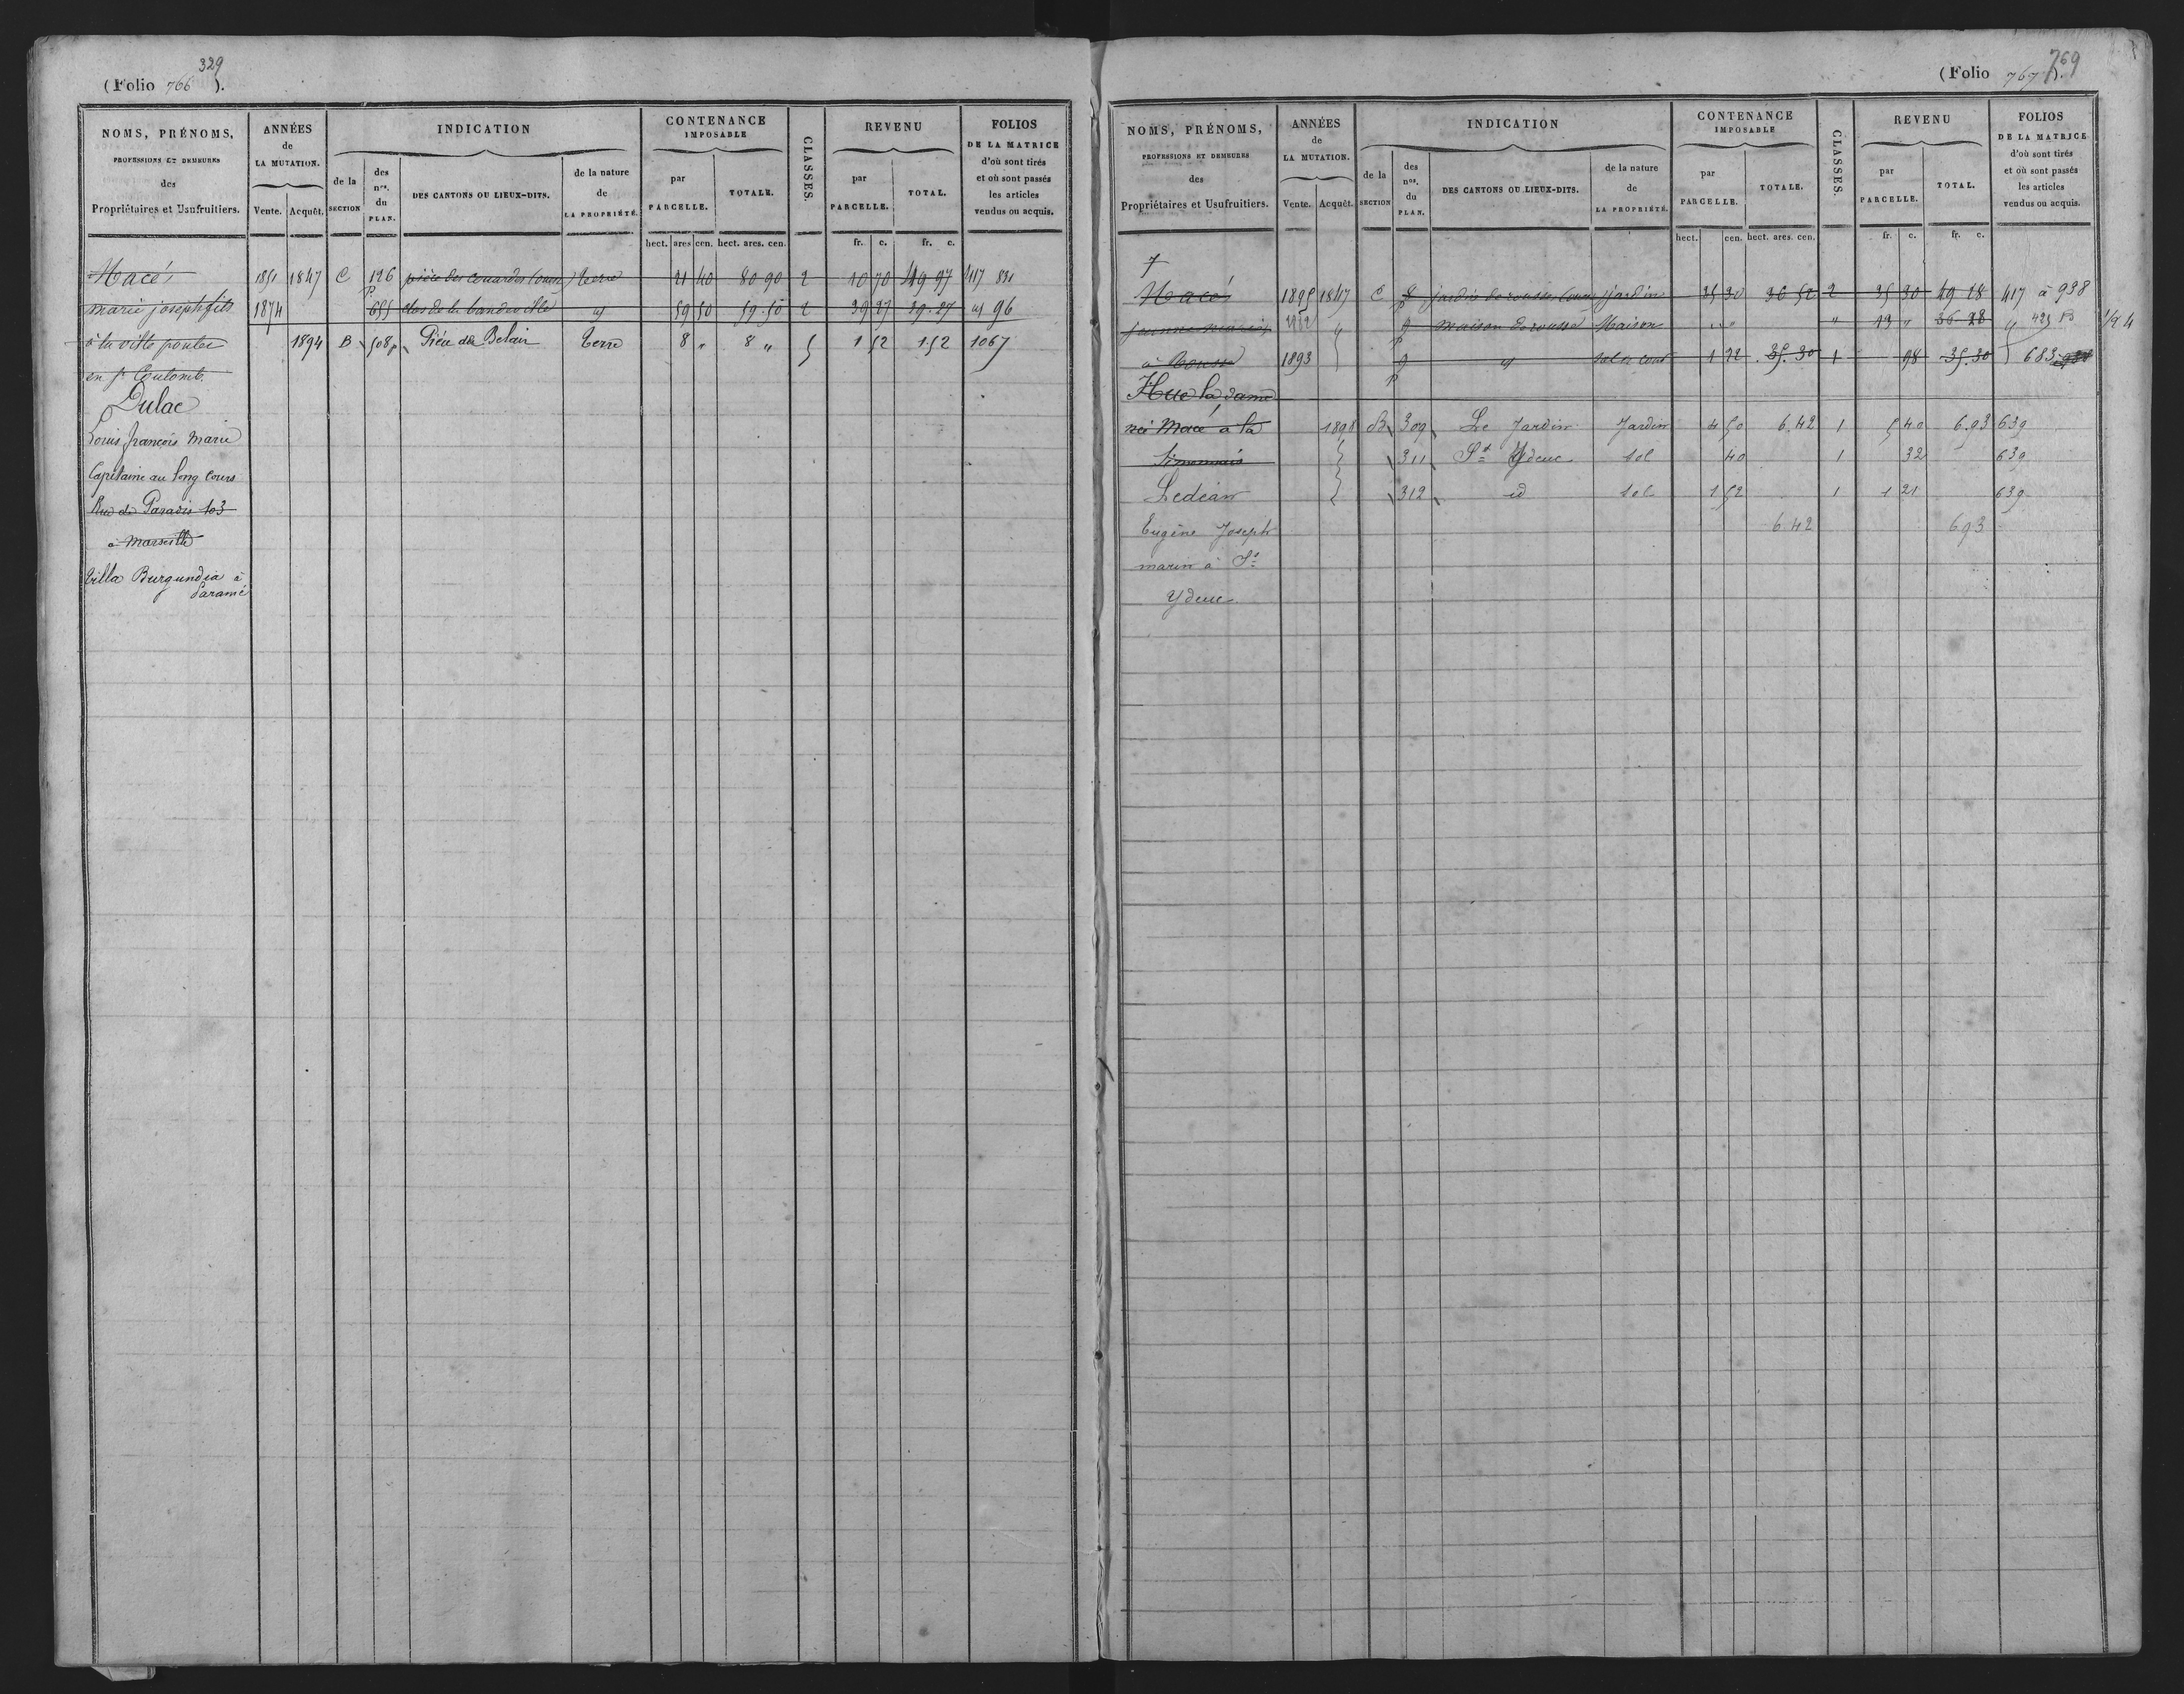 329
(Folio 766 ).
NOMS, PRÉNOMS,
PROFESSIONS ET DEMEURES
des
Propriétaires et Usufruitiers.
ANNÉES
de
LA MUTATION.
Vente. Acquêt.
INDICATION
de la
SECTION
des
nos.
du
PLAN.
DES CANTONS OU LIEUX-DITS.
de la nature
de
LA PROPRIÉTÉ.
CONTENANCE
IMPOSABLE
par
PARCELLE.
TOTALE.
CLASSES.
REVENU
par
PARCELLE.
TOTAL.
FOLIOS
DE LA MATRICE
d'où sont tirés
et où sont passés
les articles
vendus ou acquis.
hect. ares cen. hect. ares. cen. fr. c. fr. c.
Macé 1851 1847 C 126 p pièce des Terre 21 40 80 90 2 10 70 49 97 417 831
marie joseph fils 1874 655 clos de la 59 50 59.50 2 39 27 39.27 96
à la ville 1894 B 508p Pièce de Belair Terre 8 " 8 " 5 1 52 1.52 1067
en St Coulomb.
Dulac
Louis françois Marie
Capitaine au long Cours
Rue de Paradis 103
à Marseille
Villa Burgundia à
Paramé
769
(Folio 767 ).
NOMS, PRÉNOMS,
PROFESSIONS ET DEMEURES
des
Propriétaires et Usufruitiers.
ANNÉES
de
LA MUTATION.
Vente. Acquêt.
INDICATION
de la
SECTION
des
nos.
du
PLAN.
DES CANTONS OU LIEUX-DITS.
de la nature
de
LA PROPRIÉTÉ.
CONTENANCE
IMPOSABLE
par
PARCELLE.
TOTALE.
CLASSES.
REVENU
par
PARCELLE.
TOTAL.
FOLIOS
DE LA MATRICE
d'où sont tirés
et où sont passés
les articles
vendus ou acquis.
hect. cen. hect. ares. cen. fr. c. fr. c.
Macé 1895 1847 C 8 p jardin de jardin 35 30 36 52 2 35 30 49 28 417 à 938
9 p maison de Maison " " " 13 " 36 28 425
à 1893 9 p sol et cour 1 22 35.30 1 98 35.30 683
Hue la dame
née Macé à la 1898 B 309 Le Jardin Jardin 4 50 6.42 1 5 40 6.93 639
311 St Ydeuc sol 40 1 32 639
Ledéan 312 id sol 1 52 1 1 21 639
Eugène Joseph 6.42 6.93
marin à St
Ydeuc